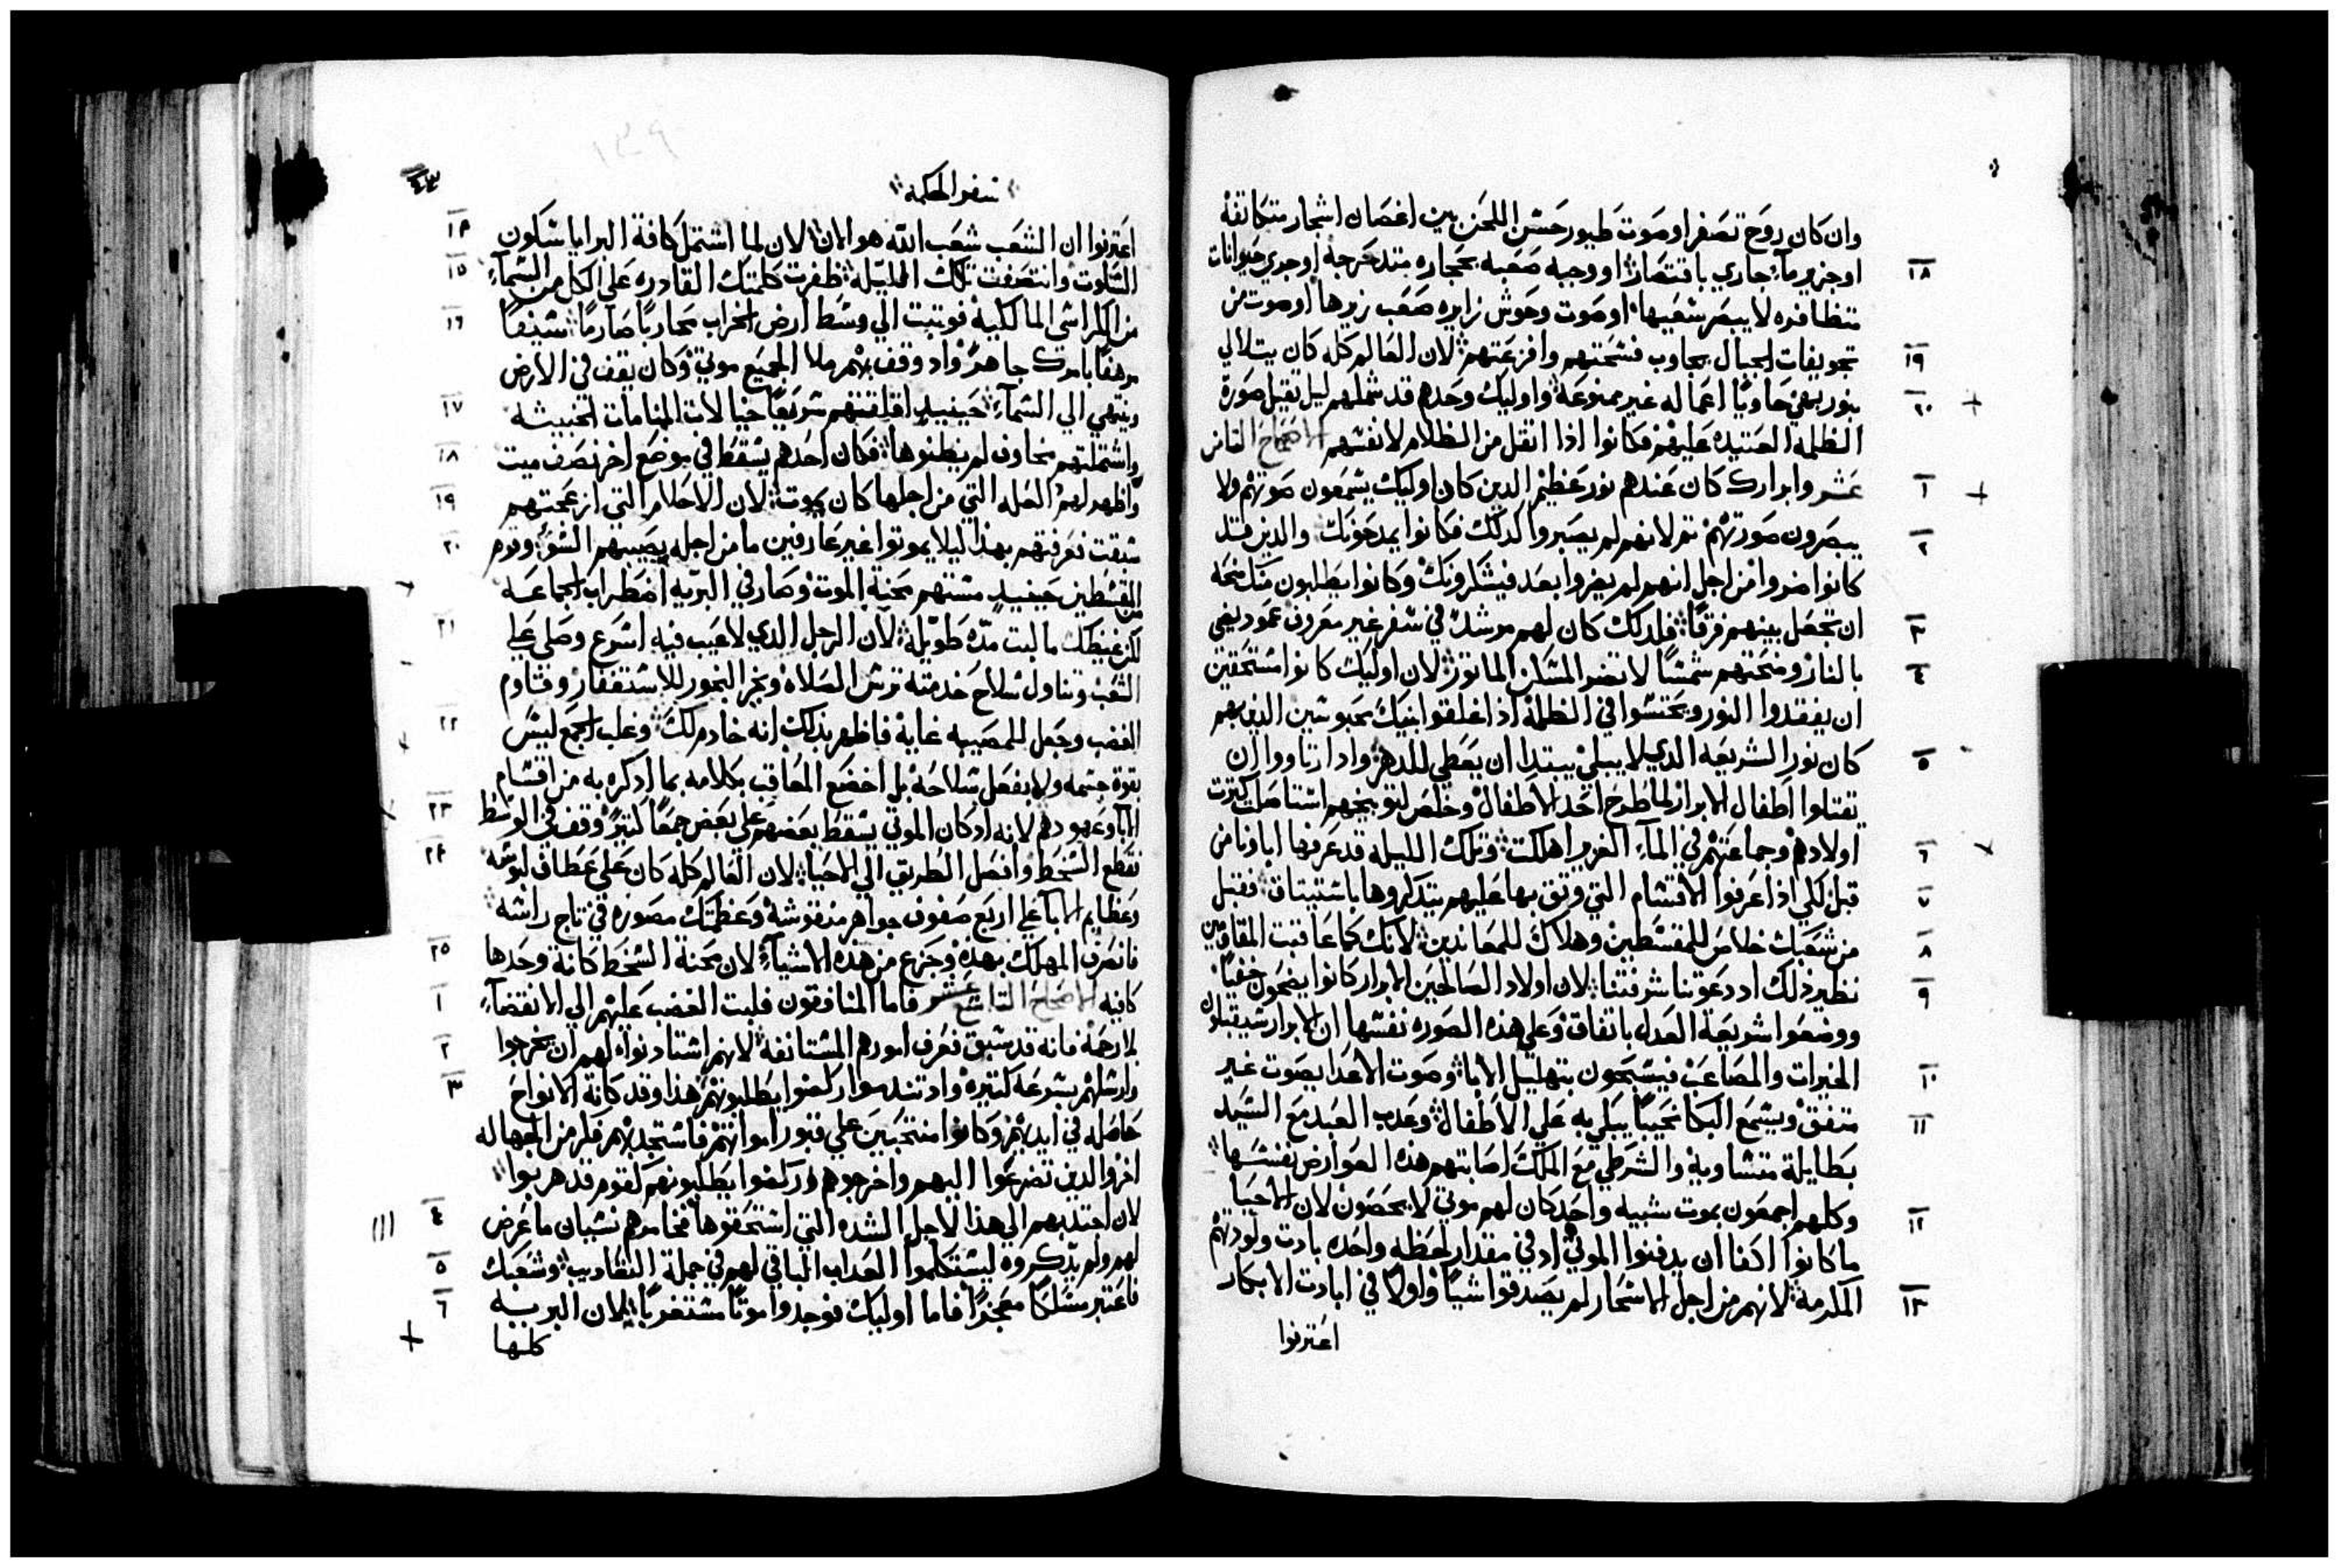 وان كان روح تصفر او صوت طيور حسن اللحن بين اغصان اشجار متكاتفة
١٨ او جزير مآء جاري باقتصار او وجبه صعبه بحجاره متدحرجة او جري حيوانات
متطافره لا يبصر سعيها او صوت وحوش زايره صعب زيرها او صوت من
١٩ تجويفات الجبال يجاوب فسختهم وافزعتهم لان العالم كله كان يتلالي
٢٠ بنور بهي حاويًا اعماله غير ممنوعة واوليك وحدهم قد شملهم ليل ثقيل صورة
الظلمه العتيده عليهم فكانوا اذا اثقل من الظلام لانفسهم الاصحاح الثامن
١ عشر وابرارك كان عندهم نور عظيم الدين كان اوليك يسمعون صوتهم ولا
٢ يبصرون صورتهم ثم لانهم لم يصبروا لدلك فكانوا يمدحونك والدين قد
كانوا ضروا من اجل انهم لم يضروا بعد فيشكرونك وكانوا يطلبون منك منحه
٣ ان تجعل بينهم فرقًا فلدلك كان لهم مرشد في سفر غير معروف عمود يضي
٤ بالنار ومنحتهم شمسًا لا تضر المسكن الماثور لان اوليك كانوا مستحقين
ان يفقدوا النور ويحتبسوا في الظلمة اذ اغلقوا ابنيك محبوسين الدين بهم
٥ كان نور الشريعه الدي لا يبلي يبتدا ان يعطي للدهر واد ارتاووا ان
يقتلوا اطفال الابرار لما طرح احد الاطفال وخلص لتوبيخهم استاصلت كثرت
٦ اولادهم وجماعتهم في المآء الغزير اهلكت وتلك الليلة قد عرفها اباونا من
٧ قبل لكي اذا عرفوا الاقسام التي وثق بها عليهم يتدكروها باستيثاق فقبل
٨ من شعبك خلاص للمقسطين وهلاك للمعاندين لانك كما عاقبت المقاومين
٩ نظير ذلك اد دعوتنا شرفتنا لان اولاد الصالحين الابرار كانوا يضحون خفيًا
ووضعوا شريعة العدل باتفاق وعلي هذه الصوره نفسها ان الابرار سيقبلون
١٠ الخيرات والمصاعب فيسبحون بتهليل الابا وصوت الاعدا بصوت غير
١١ متفق ويسمع البكا نحيبًا يبلي به علي الاطفال وعدب العبد مع السيد
بطايلة متساوية والشرطي مع الملك اصابتهم هذه العوارض نفسها
١٢ وكلهم اجمعون بموت شبيه واحد كان لهم موتي لا يحصون لان الاحيا
ما كانوا اكفا ان يدفنوا الموتي اد في مقدار لحظه واحده بادت ولودتهم
١٣ المكرمة لانهم من اجل الاسحار لم يصدقوا شيًا واولا في ابادت الابكار
اعترفوا
سفر الحكمه
١٤ اعترفوا ان الشعب شعب الله هو الان لان لما اشتمل كافة البرايا سكون
١٥ السكوت وانتصفت تلك الليله ظفرت كلمتك القادره علي الكل من السمآء
١٦ من الكراسي المالكية فوثبت الي وسط ارض الخراب محاربًا صارمًا سيفًا
مرهفًا بامرك جاهر واد وقف بهم ملا الجميع موتي وكان يقف في الارض
١٧ وينتهي الي السمآء حينيد اقلقتهم سريعًا خيالات المنامات الخبيثه
١٨ واشتملتهم مخاوف لم يظنوها فكان احدهم يسقط في موضع اخر نصف ميت
١٩ واظهر لهم العله التي من اجلها كان يموت لان الاحلام التي ازعجتهم
٢٠ سبقت فعرفتهم بهذا ليلا يموتوا غير عارفين ما من اجله يصيبهم السو وقوم
المقسطين حينيد مستهم محنة الموت وصار في البريه اضطراب الجماعه
٢١ لكن غيظك ما لبت مده طويله لان الرجل الدي لا عيب فيه اسرع وصلي علي
الشعب وتناول سلاح خدمته ترس الصلاه وبخر البخور للاستغفار وقاوم
٢٢ الغضب وجعل للمصيبه غاية فاظهر بدلك انه خادم لك وغلب الجمع ليس
بقوة جسمه ولا بفعل سلاحه بل اخضع المعاقب بكلامه بما ادكره به من اقسام
٢٣ الابا وعهودهم لانه اد كان الموتي يسقط بعضهم علي بعض جمعًا كثير وقف في الوسط
٢٤ فقطع السخط وافصل الطريق الي الاحيا لان العالم كله كان علي عطاف لبوسه
وعظايم الابا علي اربع صفوف جواهر منقوشة وعظمتك مصوره في تاج راسه
٢٥ فانصرف المهلك بهده وجزع من هذه الاشيآء لان محنة السخط كانة وحدها
١ كافيه الاصحاح التاسع عشر فاما المنافقون فلبت الغضب عليهم الي الانقضآء
٢ بلا رحمة فانه قد سبق فعرف امورهم المستانفة لانهم استادنوا لهم ان يخرجوا
٣ وارسلهم بسرعه كثيره واد تندموا ركضوا يطلبونهم هذا وقد كانة الانواح
حاصله في ايديهم وكانوا منتحبين علي قبور امواتهم فاستجد لهم فكر من الجهاله
اخر والدين تضرعوا اليهم واخرجوهم وركضوا يطلبونهم كقوم قد هربوا
٤ لان اجتدبهم الي هذا الاجل الشده التي استحقوها فخامرهم نسيان ما عرض
٥ لهم ولم يدكروه ليستكملوا العداب الباقي لهم في جملة التعاديب وشعبك
٦ فاعتبر مسلكًا معجزًا فاما اوليك فوجدوا موتًا مستغربًا لان البريه
كلها